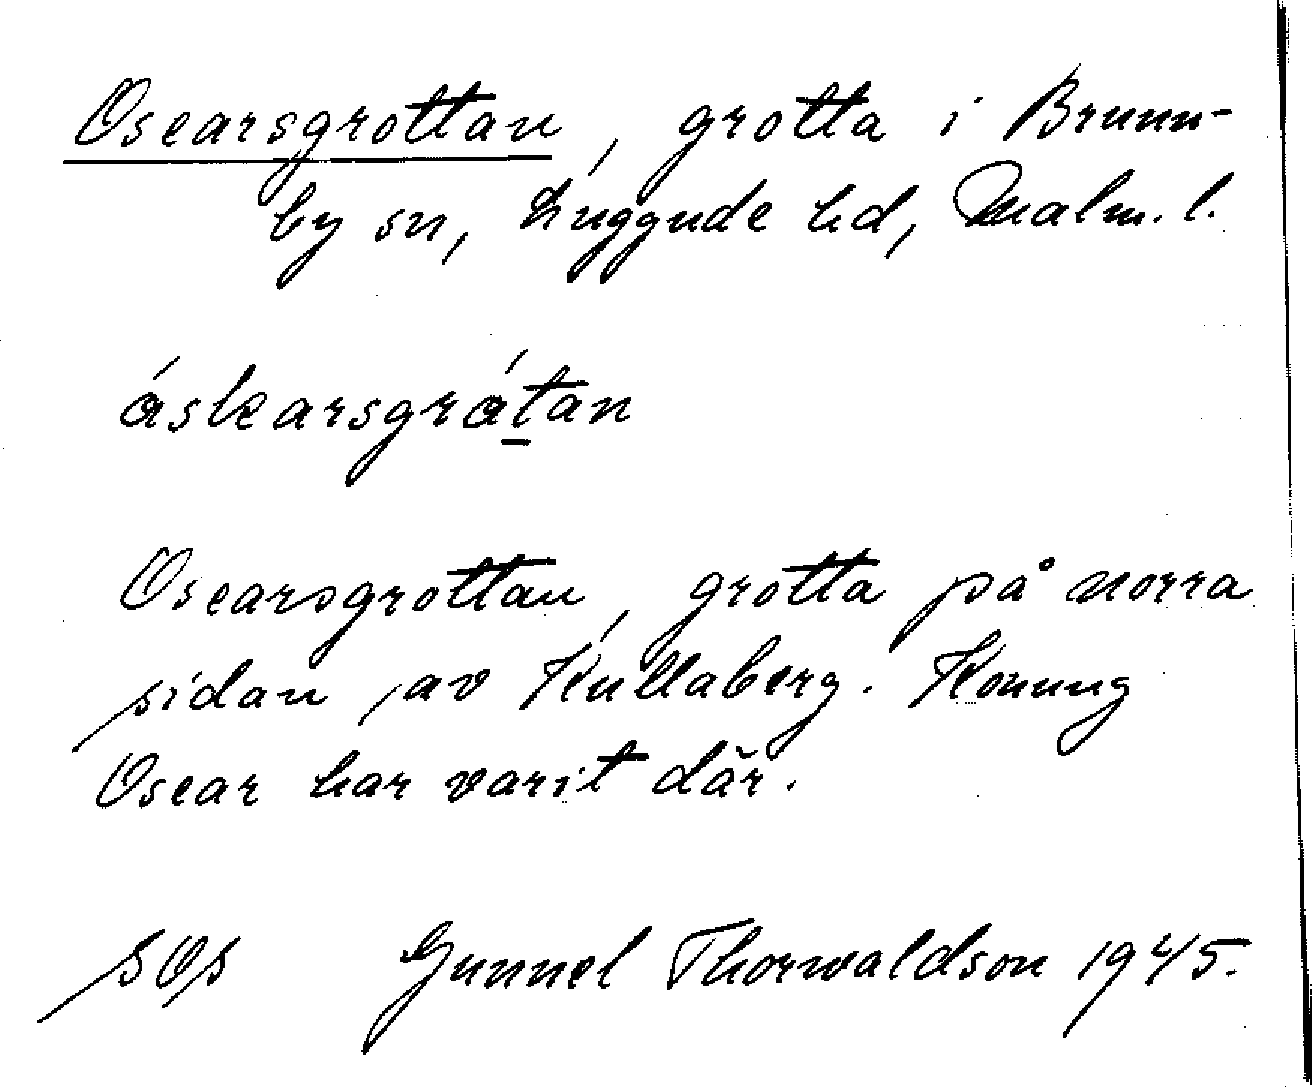 Oscarsgrottan, grotta i Brunn-
by sn, Luggude hd, Malm. l.
áskarsgrátan
Oscarsgrottan, grotta på norra
sidan av Kullaberg. Konung
Oscar har varit där.
SOS Gunnel Thorwaldson 1945.